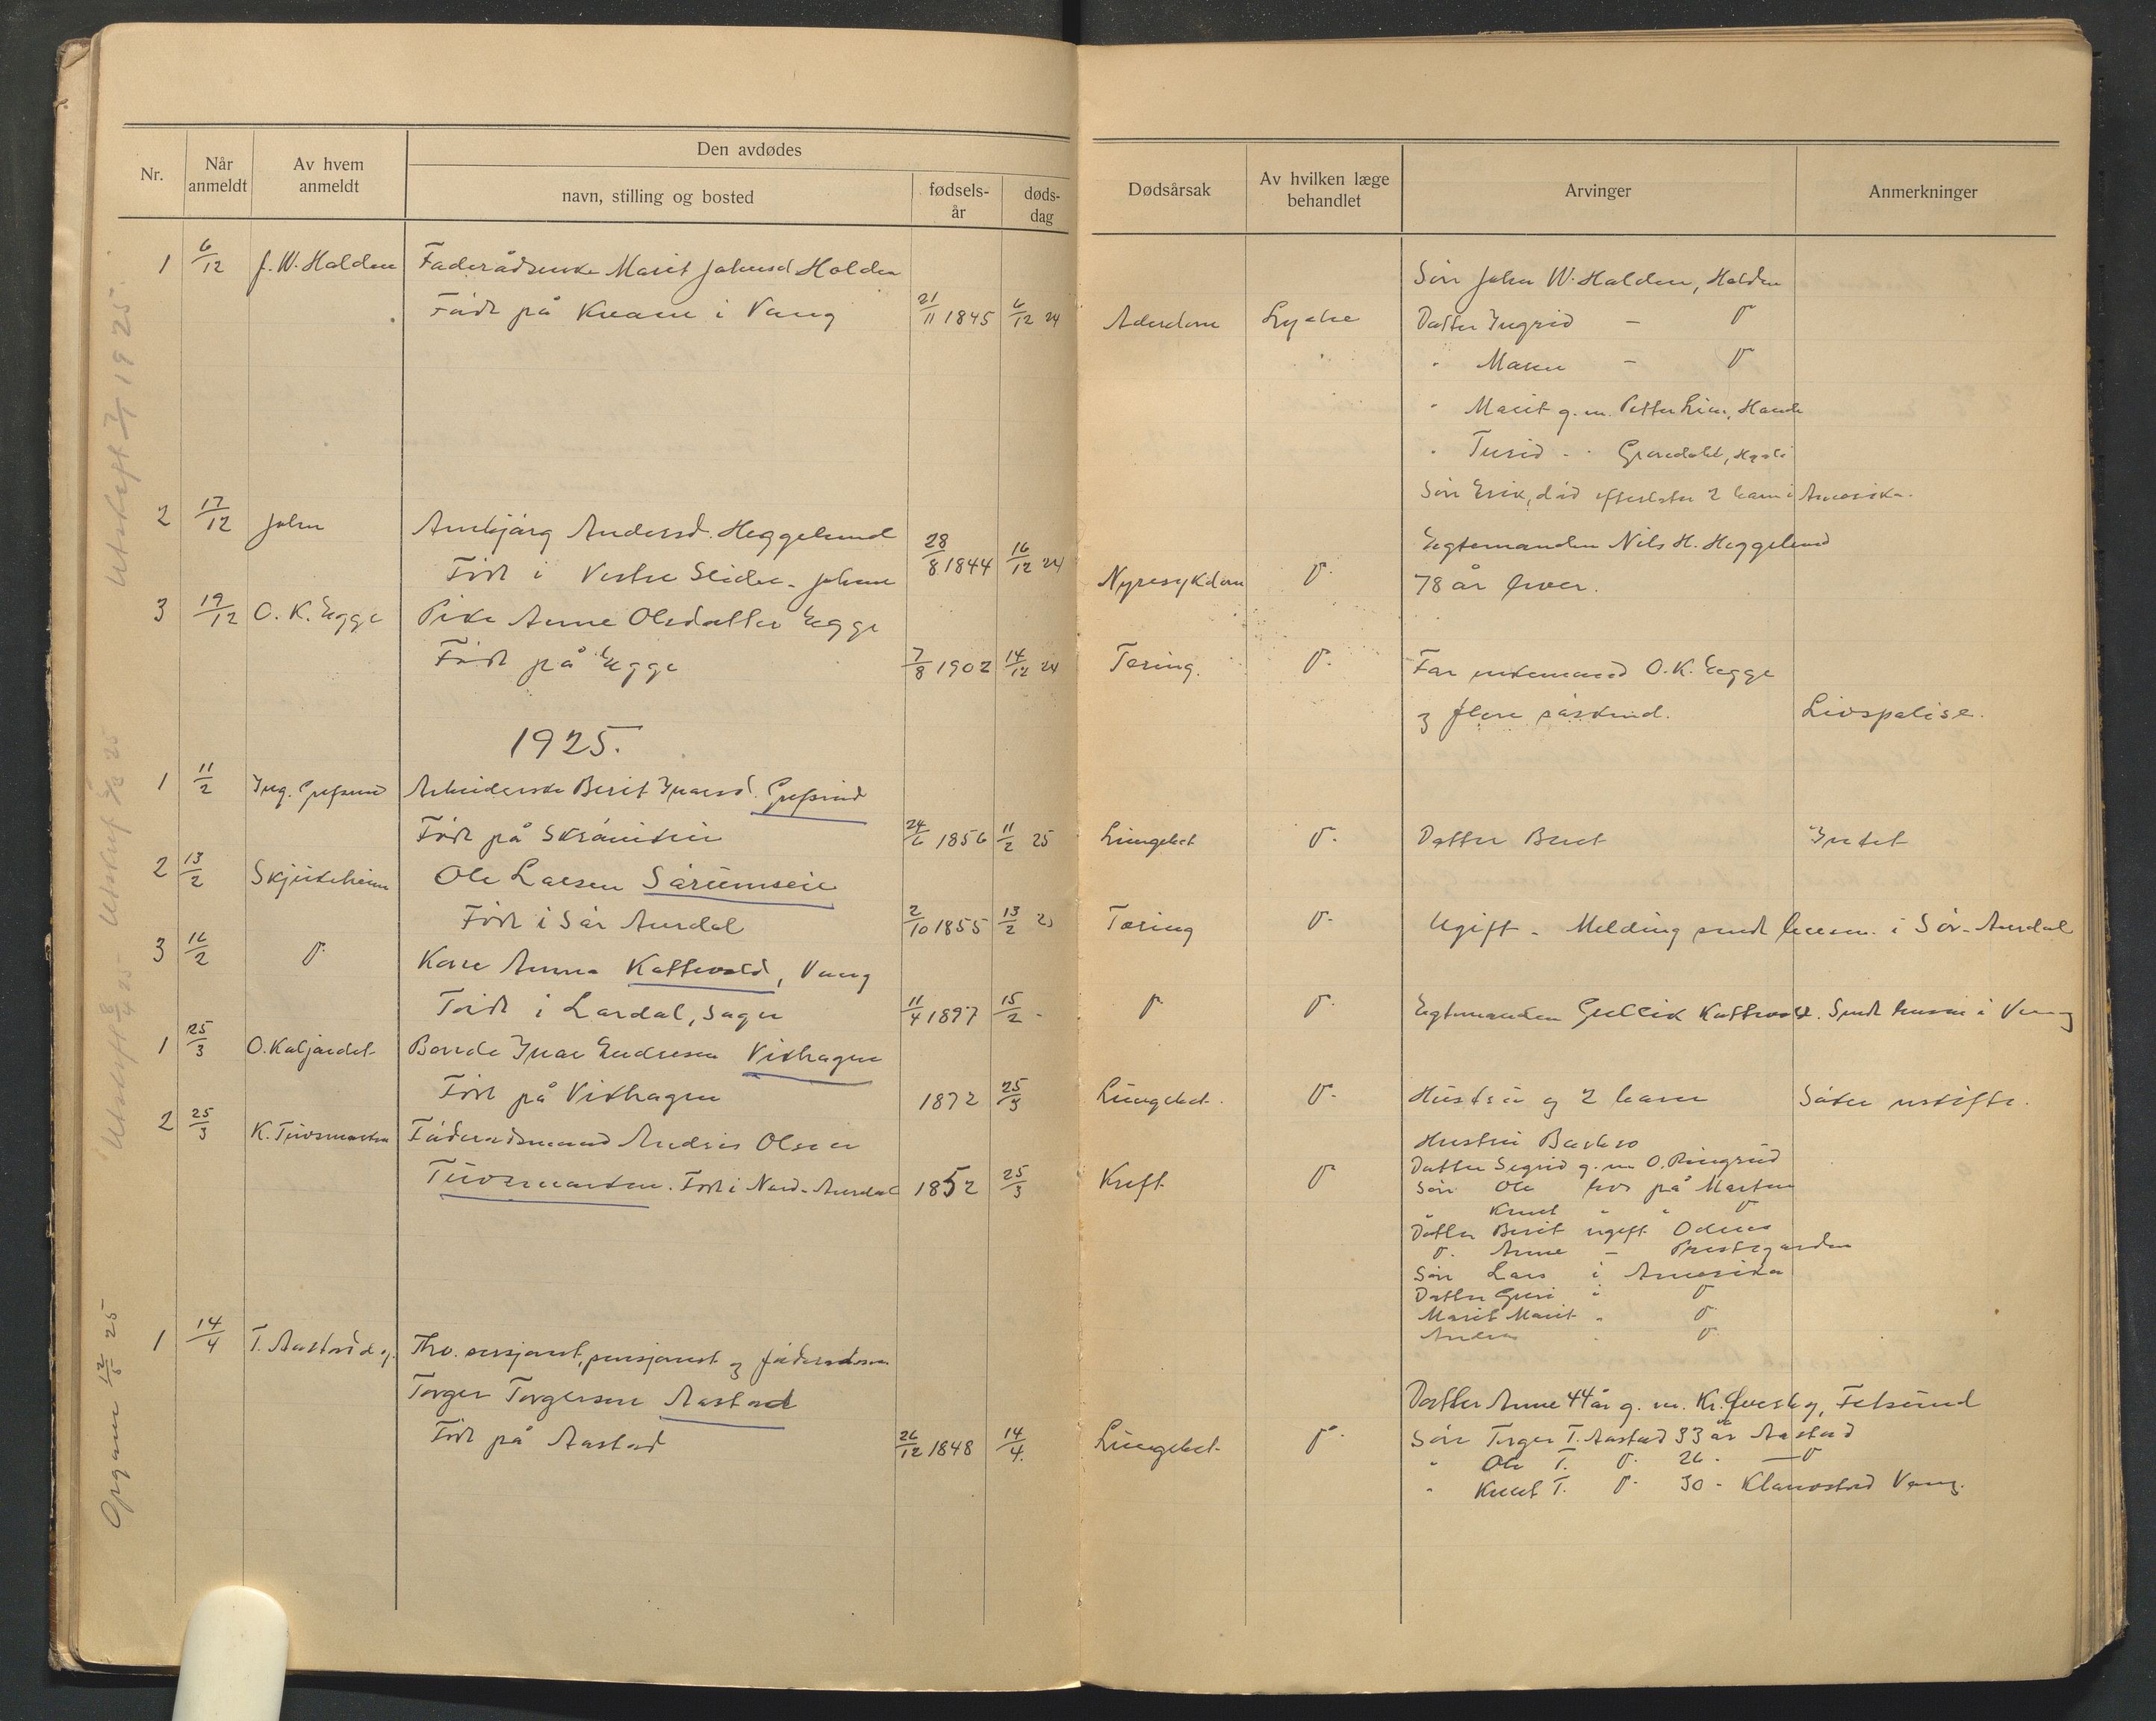 Den avdødes
Nr.
Når anmeldt
Av hvem anmeldt
navn, stilling og bosted
fødsels-år
døds-dag
Dødsårsak
Av hvilken læge behandlet
Arvinger
Anmerkninger
1 6/12 J. W. Holden Faderådsenke Marit Johnsd Holden
Født på Kvame i Vang 21/11 1845 6/12 24 Alderdom
Søn John W. Holden, Holden
Datter Ingrid –
" Maren –
" Marit g. m. Petter Lien,
" Turid
Søn Erik, død efterlater 2 barn i Amerika.
2 17/12 John Anbjørg Andersd. Heggelund
Født i Vestre Slidre 28/8 1844 16/12 24 Nyresykdom
Egtemanden Nils H. Heggelund
78 år
3 19/12 O. K. Egge Pike Anne Olsdatter Egge
Født på Egge 7/8 1902 14/12 24 Tæring
Far enkemand O. K. Egge
og flere søskend. Livspolise.
1925.
1 11/2 Ing. Grefsrud Arbeiderske Berit Ivarsd. Grefsrud
Født på 24/6 1856 11/2 25 Lungebet Datter Berit Intet
2 13/2 Skjutsheim Ole Larsen Sørumseie
Født i Sør Aurdal 2/10 1855 13/2 25 Tæring Ugift – Melding sendt lensm. i Sør-Aurdal
3 16/2 Kone Anna Kattevold, Vang
Født i Lærdal, Sogn 11/4 1897 15/2 – Egtemanden Gullik Kattevold. Sendt lensm i Vang
1 25/3 Bonde Ivar Endresen Vikhagen
Født på Vikhagen 1872 25/3 Lungebet. Hustru og 2 barn
2 25/3 Føderådsmand Andris Olsen
Født i Nord-Aurdal 1852 25/3 Kreft
Hustru Barbro
Datter Sigrid g. m O. Ringrud
Søn Ole bor på Marten
" Knut " "
Datter Berit ugift
Anne – Prestegarden
Søn Lars i Amerika
Datter Guri i
Marit Marit "
Andris "
1 14/4 T. Aastad Fhv. sersjant, pensjonist og føderådsm
Torger Torgersen Aastad
Født på Aastad 26/12 1848 14/4. Lungebet.
Datter Anne 44 år g. m. Kr. Øvrebø, Fetsund
Søn Torger T. Aastad 33 år Aastad
" Ole T. 26 –
" Knut T. 30 – Klanostad Vang.
Utskrift 7/1 1925.
Utskrift 8/4 25
Opgave 12/5 25